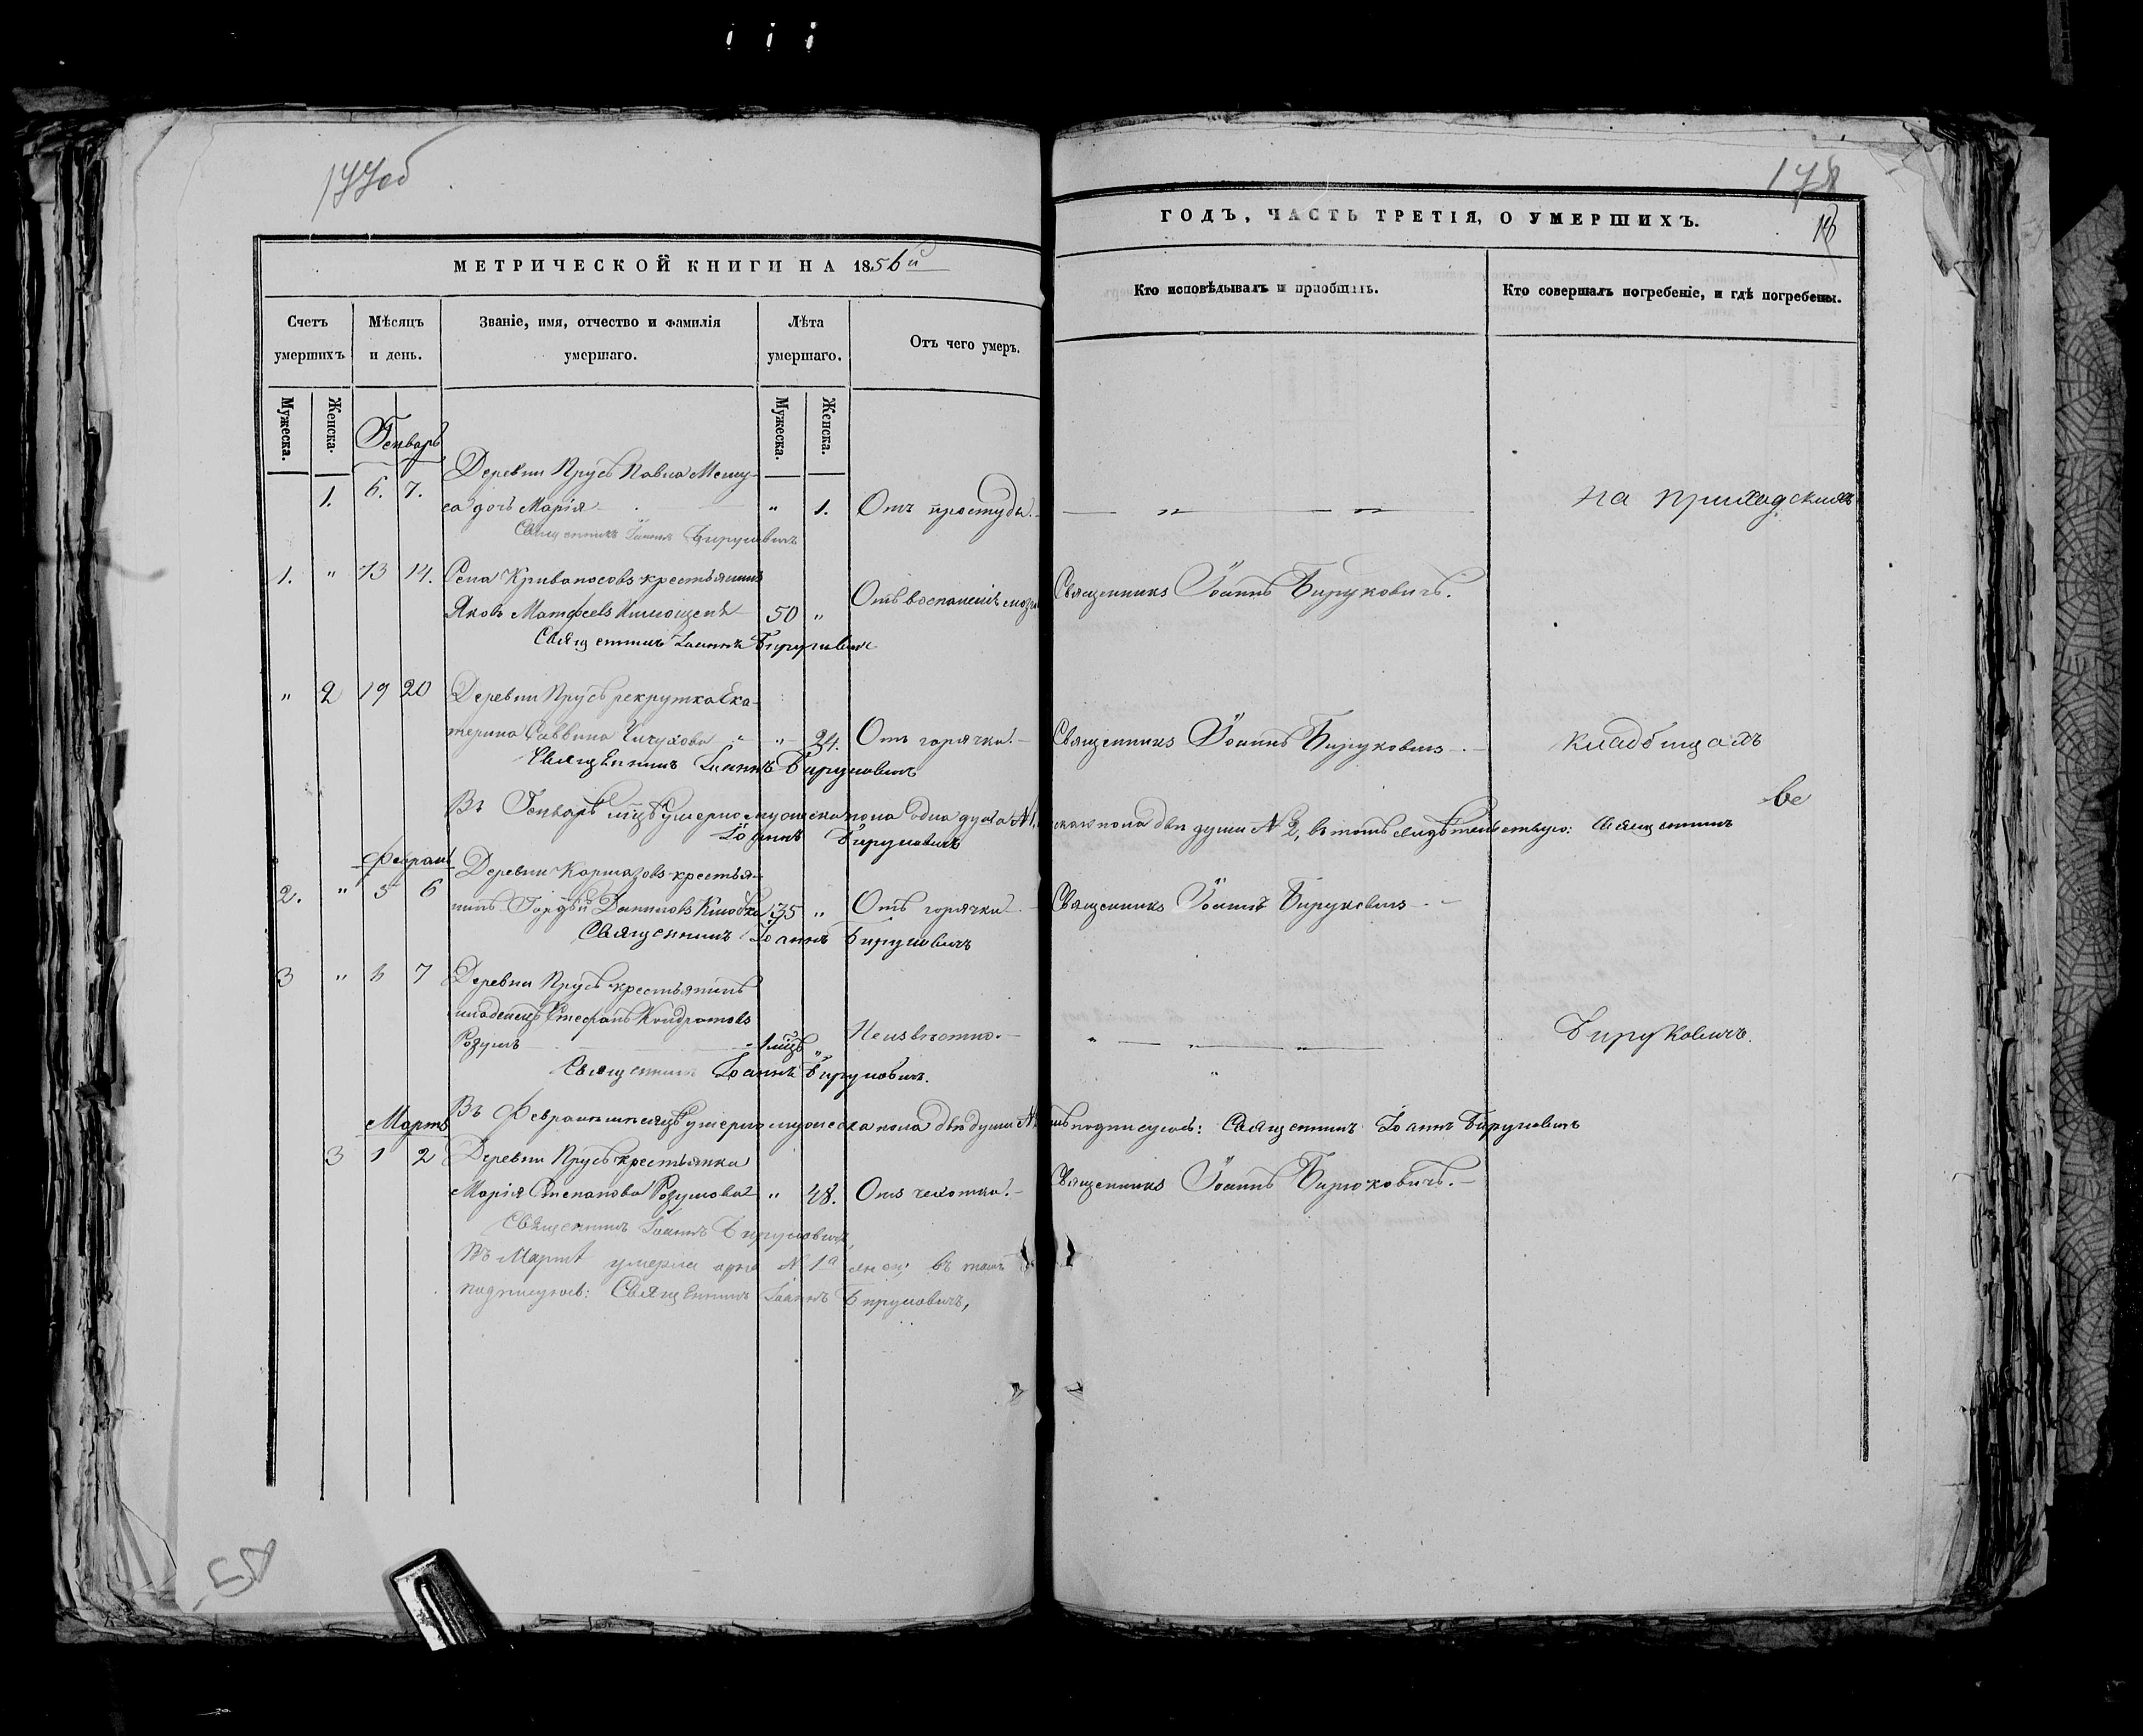 177об
178
18
МЕТРИЧЕСКОЙ КНИГИ НА 1856й
ГОДЪ, ЧАСТЬ ТРЕТІЯ, О УМЕРШИХЪ.
Счетъ умершихъ
Мѣсяцъ и день.
Званіе, имя, отчество и фамилія умершаго.
Лѣта умершаго.
Отъ чего умеръ.
Кто исповѣдывалъ и пріобщалъ.
Кто совершалъ погребеніе, и гдѣ погребены.
Мужеска.
Женска.
Мужеска.
Женска.
Генварь
Деревни Прусъ Павла
1. 6. 7. са дочь Марія " 1. Отъ простуды. " "
На приходскихъ
Священникъ Іоаннъ Бируковичъ
1. " 13 14. Села Кривоносовъ крестьянинъ
Яковъ Матфеевъ 50 " Отъ воспаленія Священникъ Іоаннъ Бируковичъ.
Священникъ Іоаннъ Бируковичъ
" 2 19 20 Деревни Прусъ рекрутка Ека-
терина Саввина " 24. Отъ горячки. Священникъ Іоаннъ Бируковичъ
кладбищахъ
Священникъ Іоаннъ Бируковичъ
Въ Генварѣ м͠цѣ умерло мужеска пола одна душа № 1, женска пола двѣ души № 2, въ томъ свидѣтельствую: Священникъ
Іоаннъ Бируковичъ
Февраль
Деревни крестья-
2. " 5 6 нинъ Гордѣй Даниловъ 35 " Отъ горячки Священникъ Іоаннъ Бируковичъ
Священникъ Іоаннъ Бируковичъ
3 " 6 7 Деревни Прусъ крестьянинъ
младенецъ Стефанъ Кондратовъ
Розумъ 1 м͠цъ " Неизвѣстно. " "
Бируковичъ.
Священникъ Іоаннъ Бируковичъ.
Въ Февралѣ мѣсяцѣ умерло мужеска пола двѣ души подписуюсь: Священникъ Іоаннъ Бируковичъ
Мартъ
3 1 2 Деревни Прусъ крестьянка
Марія Степанова Розумова " 48. Отъ чахотки. Священникъ Іоаннъ Бирюковичъ.
Священникъ Іоаннъ Бируковичъ,
Въ Мартѣ умерла одна № 1а въ томъ
подписуюсь: Священникъ Іоаннъ Бируковичъ,